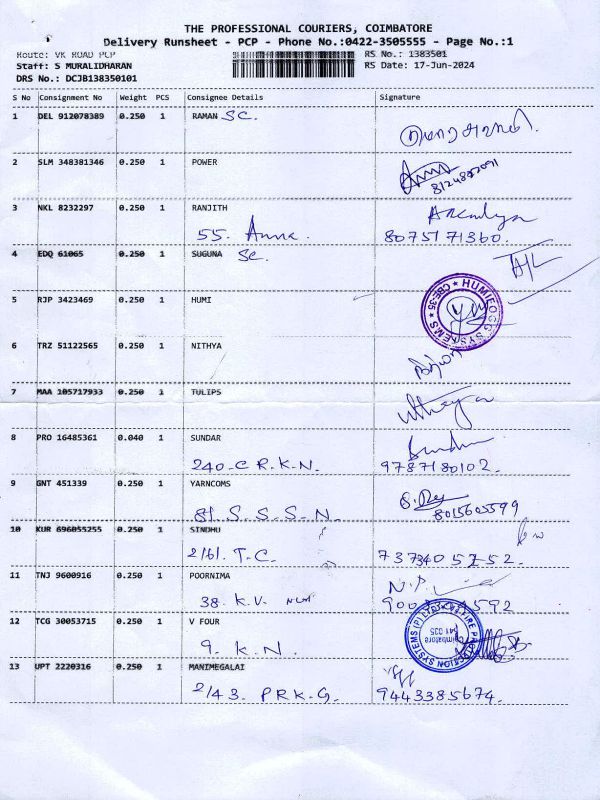 THE PROFESSIONAL COURIERS, COIMBATORE
Delivery Runsheet - PCP - Phone No.:0422-3505555 - Page No.:1
Route: VK ROAD PCP
RS No.: 1383501
Staff: S MURALIDHARAN
RS Date: 17-Jun-2024
DRS No.: DCJB138350101
S No Consignment No Weight PCS Consignee Details Signature
1 DEL 912078389 0.250 1 RAMAN SC.
2 SLM 348381346 0.250 1 POWER
8124872091
3 NKL 8232297 0.250 1 RANJITH
55. Anna. 8075171360.
4 EDQ 61065 0.250 1 SUGUNA SC.
5 RJP 3423469 0.250 1 HUMI
HUMIEOGG SYSTEMS ★ CBE-35 ★
6 TRZ 51122565 0.250 1 NITHYA
நித்யா
7 MAA 105717933 0.250 1 TULIPS
8 PRO 16485361 0.040 1 SUNDAR
240-C R.K.N. 9787180102.
9 GNT 451339 0.250 1 YARNCOMS
81. S.S.S.N. 8015605599
10 KUR 696055255 0.250 1 SINDHU
2/61. T.C. 737340 5 52.
11 TNJ 9600916 0.250 1 POORNIMA
38. K.V. N.P.
12 TCG 30053715 0.250 1 V FOUR
9. K.N. FIRE PROTECTION SYSTEMS (P) LTD
Coimbatore 641 035
13 UPT 2220316 0.250 1 MANIMEGALAI
2/43. P.R.K.G. 9443385674.